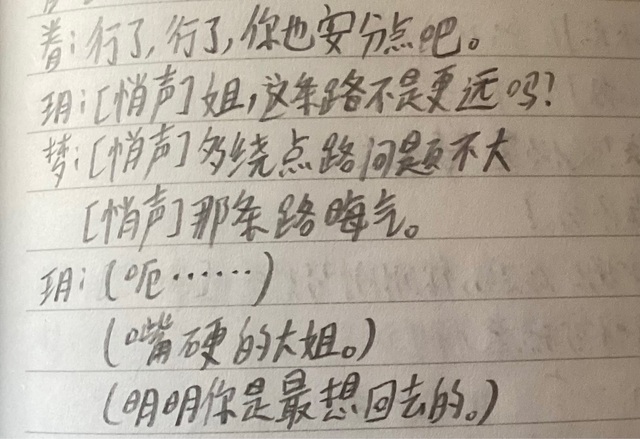 着:行了,行了,你也安分点吧。
玥:[悄声]姐,这条路不是更远吗?
梦:[悄声]多绕点路问题不大
[悄声]那条路晦气。
玥:(呃……)
(嘴硬的大姐。)
(明明你是最想回去的。)